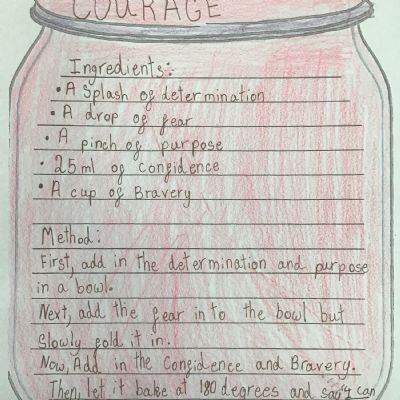 COURAGE
Ingredients:
• A Splash of determination
• A drop of fear
• A pinch of purpose
• 25ml of Confidence
• A cup of Bravery
Method:
First, add in the determination and purpose
in a bowl.
Next, add the fear into the bowl but
Slowly fold it in.
Now, Add in the Confidence and Bravery.
Then, let it bake at 180 degrees and say "I can